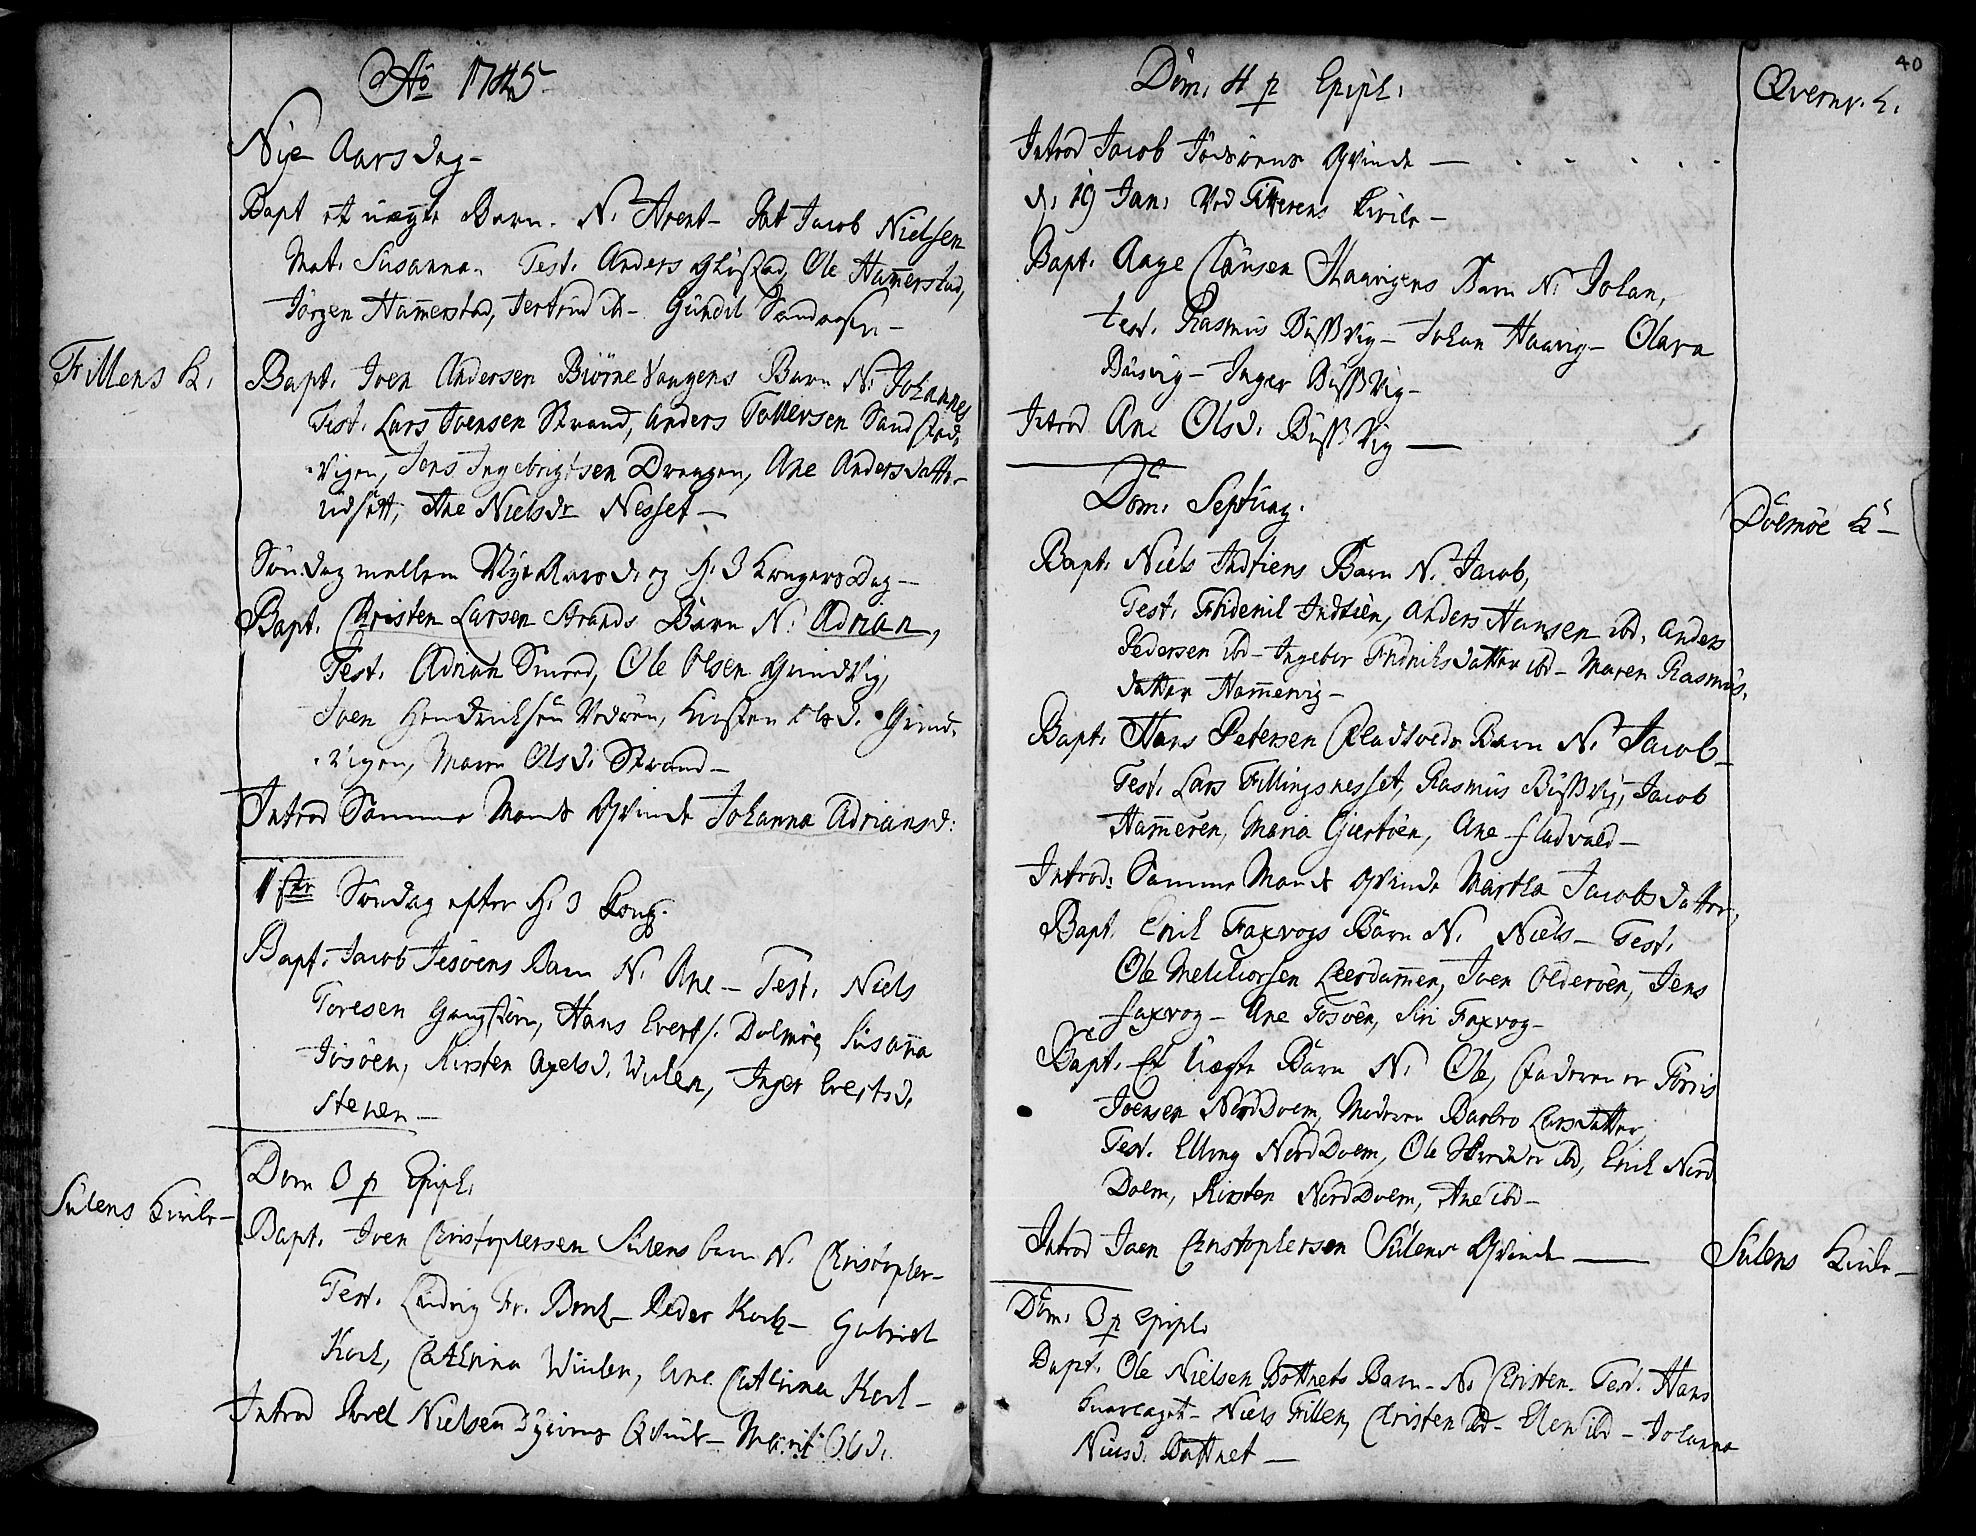 Aō 1745
Nye Aars dag
Bapt et uægte Barn. N. Arent- Pat Jacob Nielsen
Mat. Susanna. Test. Anders Ole Ham̄erstad,
Jörgen Ham̄erstad, ib- Gündel
Fillens K.
Bapt. Joen Andersen Biörnevangens Barn N. Johannes
Test. Lars Joensen Strand, Anders Tollersen Sandstad
vigen, Jens Ingebrigtsen Drangen, Ane Andersdatter
üdsætt, Ane Nielsdr Nesset-
Søndag mellem Nye Aars d. og H. 3 Kongers Dag-
Bapt. Christen Larsen Strands Barn N. Adrian,
Test. Adrian Ole Olsen Grindvig,
Joen Hendricksen Vedöen, Kirsten Olsd. Grind-
vigen, Maren Olsd. Strand-
Introd Samme Mands Qvinde Johanna Adriansd:
1ster Søndag efter H. 3 Kong.
Bapt. Jacob Jösöens Barn N. Ane- Test. Niels
Toresen Hans Everts. Dolmöe, Susan̄a
Jösöen, Kirsten Axelsd. Inger Evertsd.
Stenen-
Dom 3 p Epiph.
Sülens Kirke-
Bapt. Joen Christophersen Sülens barn N. Christopher-
Test. Ludvig Fr. Peder Koch- Gabriel
Koch, Cathrina Ane Cathrina Koch-
Introd Povel Nielsen Qvinde- Marit Olsd.
40
Dom. 4 p Epiph.
Qvernv. K.
Introd Jacob Jösöens Qvinde -
d. 19 Jan. Ved Fillens Kirke-
Bapt. Aage Clausen Haavigens Barn N. Johan,
test. Rasmüs Büssvig- Johan Haavig- Olava
Büsvig- Inger Büssvig-
Introd Ane Olsd. Büssvig-
Dom. Septüag.
Dolmöe K-
Bapt. Niels Indtiens Barn N. Jacob,
Test. Fridrik Indtien, Anders Hansen ibd, Anders
Pedersen ibd- Ingebor Fridriksdatter ibd- Maren Rasmüs-
datter Ham̄ervig-
Bapt. Hans Petersen Fladvalds Barn N. Jacob-
Test. Lars Fillingsnesset, Rasmüs Büssvig, Jacob
Ham̄eren, Maria Giertöen, Ane fladvald-
Introd: Samme Mands Qvinde Martha Jacobsdatter,
Bapt. Erik Faxvogs Barn N. Niels- Test.
Ole Melchiorsen Leerdam̄en, Joen Olderöen, Jens
faxvog- Ane Fosöen, Siri Faxvog-
Bapt. Et üægte Barn N. Ole, Faderen er Torris
Joensen NordDolm, Moderen Barbro Larsdatter,
Test. Elling NordDolm, Ole ibd, Erik Nord
Dolm, Kirsten NordDolm, Ane ibd-
Introd Joen Christophersen Sülens Qvinde -
Sülens Kirke-
Dom. 3 p Epiph.
Bapt. Ole Nielsen Bottnets Barn- N. Christen. Test. Hans
Niels Fillen, Christen ibd- Elen ibd- Johanna
Nielsd. Bottnet-